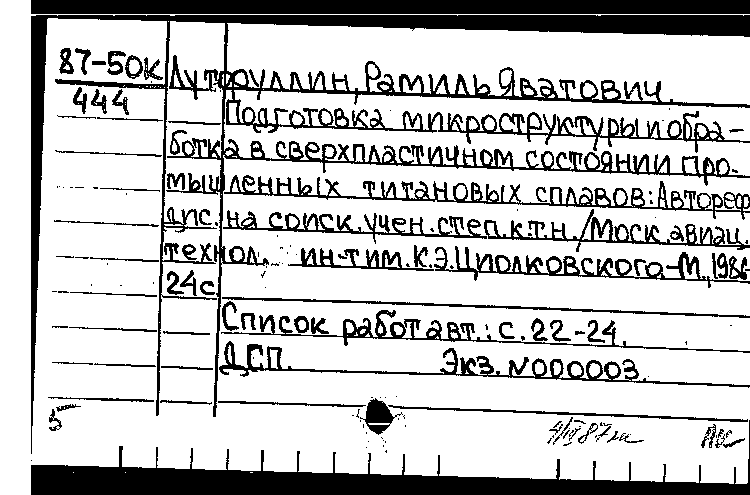 87-50к
444
Лутфуллин, Рамиль Яватович.
Подготовка микроструктуры и обра-
ботка в сверхпластичном состоянии про-
мышленных титановых сплавов: Автореф.
дис. на соиск. учен. степ. к.т.н. / Моск. авиац.
технол. ин-т им. К.Э. Циолковского. - М., 1986
24с
Список работ авт.: с. 22-24.
ДСП. Экз. N000003.
5